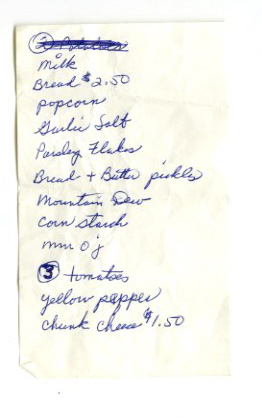 ② Potatoes
milk
Bread $2.50
popcorn
Garlic Salt
Parsley Flakes
Bread + Butter pickles
Mountain Dew
Corn starch
mm oj
③ tomatoes
yellow pepper
chunk cheese $1.50